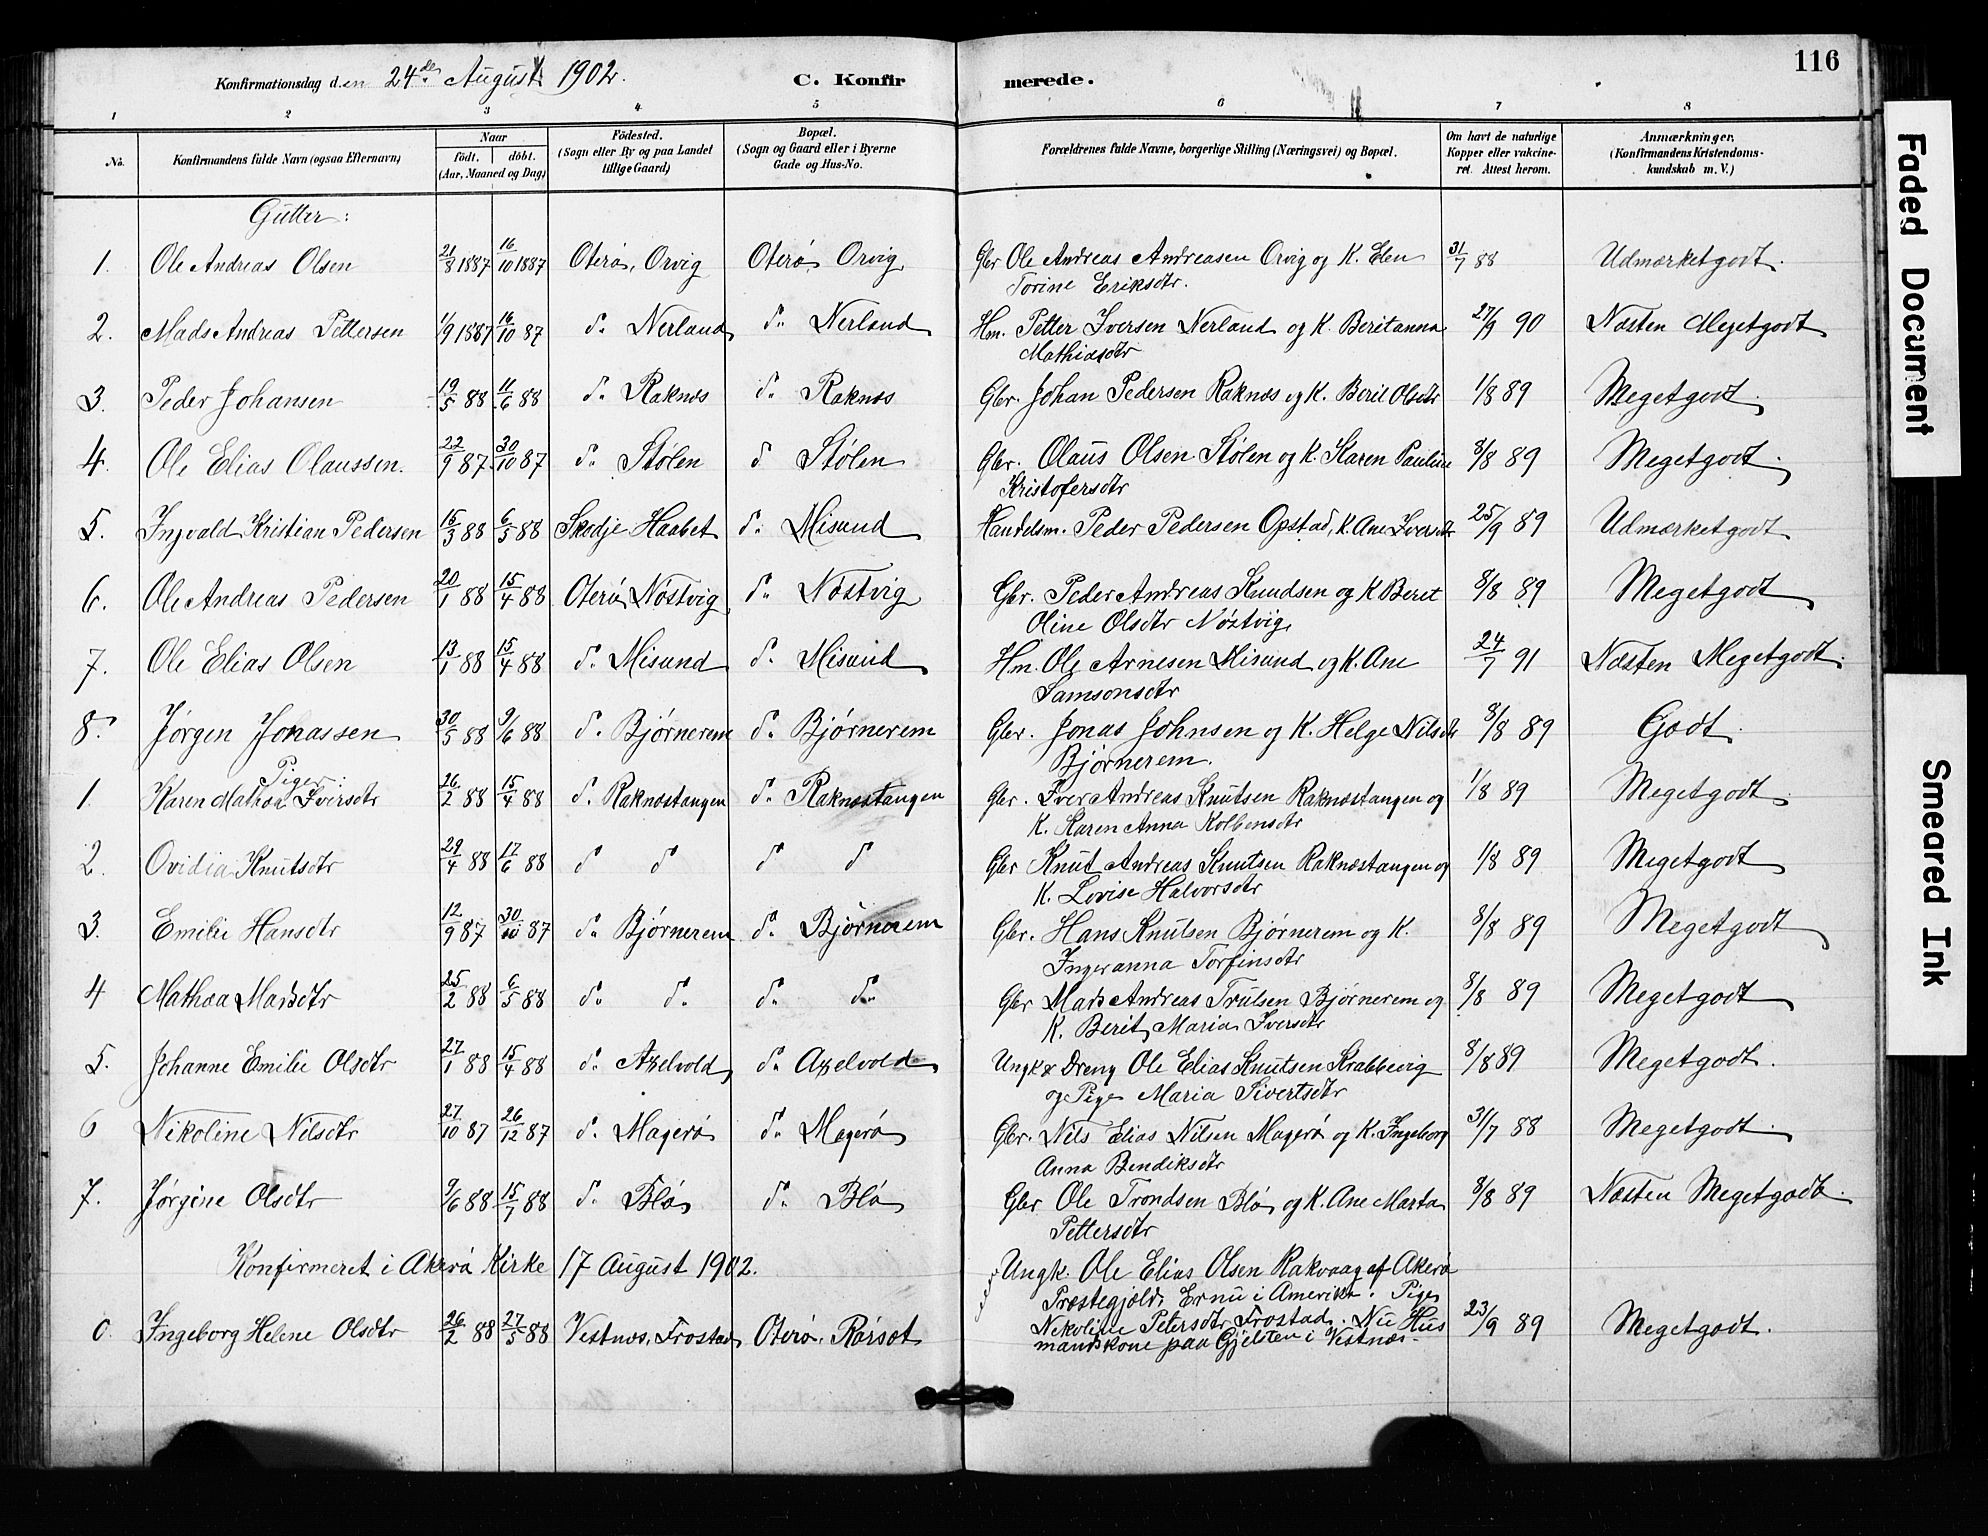 116
Konfirmationsdag den 24de August 1902. C. Konfirmerede.
1 2 3 4 5 6 7 8
No. Konfirmandens fulde Navn (ogsaa Efternavn) Naar födt. döbt. (Aar, Maaned og Dag) Födested. (Sogn eller By og paa Landet tillige Gaard) Bopæl. (Sogn og Gaard eller i Byerne Gade og Hus-No. Forældrenes fulde Navne, borgerlige Stilling (Næringsvei) og Bopæl. Om havt de naturlige Kopper eller vakcineret. Attest herom. Anmærkninger. (Konfirmandens Kristendomskundskab m. V.)
Gutter:
1. Ole Andreas Olsen 21/8 1887 16/10 1887 Oterø, Orvig Oterø Orvig Gbr Ole Andreas Andreasen Orvig og K. Elen 31/7 88 Udmærketgodt.
Torine Eriksdtr.
2. Mads Andreas Pettersen 1/9 1887 16/10 87 d. Nerland d. Nerland Hm. Petter Iversen Nerland og K. Beritanna 27/9 90 Næsten Megetgodt
Mathiasdtr
3. Peder Johansen 19/5 88 11/6 88 d. Raknæs d. Raknæs Gbr. Johan Pedersen Raknæs og K. Berit Olsdtr 1/8 89 Megetgodt.
4. Ole Elias Olaussen. 22/9 87 30/10 87 d. Stølen d Stølen Gbr. Olaus Olsen Stølen og K. Karen Pauline 8/8 89 Megetgodt.
Kristofersdtr
5. Ingvald Kristian Pedersen 15/3 88 6/5 88 Skodje Haabet d. Misund Handelsm. Peder Pedersen Opstad, K. Ane Iversdtr 25/9 89 Udmærketgodt
6. Ole Andreas Pedersen 20/1 88 15/4 88 Oterø Nøstvig d. Nøstvig Gbr. Peder Andreas Knudsen og K Beret 8/8 89 Megetgodt
Oline Olsdtr Nøstvig
7. Ole Elias Olsen 13/1 88 15/4 88 d. Misund d. Misund Hm. Ole Arnesen Misund og K. Ane 24/7 91 Næsten Megetgodt.
Samsonsdtr
8. Jørgen Jonassen 30/5 88 9/6 88 d. Bjørnerem d. Bjørnerem Gbr. Jonas Johnsen og K. Helge Nilsdtr 8/8 89 Godt.
Bjørnerem.
Piger:
1. Karen Mathea Iversdtr 26/2 88 15/4 88 d. Raknæstangen d. Raknæstangen Gbr. Iver Andreas Knutsen Raknæstangen og 1/8 89 Megetgodt
K. Karen Anna Kolbensdtr
2. Ovidia Knutsdtr 29/4 88 17/6 88 d d d d Gbr Knut Andreas Knutsen Raknæstangen og 1/8 89 Megetgodt
K. Lovise Halvorsdtr
3. Emilie Hansdtr 12/9 87 30/10 87 d. Bjørnerem d. Bjørnerem Gbr. Hans Knutsen Bjørnerem og K. 8/8 89 Megetgodt
Ingeranna Torfinsdtr
4 Mathea Madsdtr 25/2 88 6/5 88 d. d. d. d. Gbr Mads Andreas Trulsen Bjørnerem og 8/8 89 Megetgodt
K. Berit Maria Iversdtr
5. Johanne Emilie Olsdtr 27/1 88 15/4 88 d. Axelvold d. Axelvold Ungk & Dreng Ole Elias Knutsen Krabbevig 8/8 89 Megetgodt.
og Pige Maria Sivertsdtr
6 Nikoline Nilsdtr 27/10 87 26/12 87 d. Magerø d. Magerø Gbr. Nils Elias Nilsen Magerø og K. Ingeborg 31/7 88 Megetgodt.
Anna Bendiksdtr
7. Jørgine Olsdtr 9/6 88 15/7 88 d. Blø d. Blø Gbr Ole Trondsen Blø og K. Ane Marta 8/8 89 Næsten Megetgodt.
Pettersdtr
Konfirmeret i Akerø Kirke 17 August 1902. Ungk. Ole Elias Olsen Rakvaag af Akerø
Præstegjeld. Er nu i Amerika. Pige
0. Ingeborg Helene Olsdtr 26/2 88 27/5 88 Vestnæs, Frostad Oterø. Rørsæt Nikoline Petersdtr Frostad. Nu Hus 23/9 89 Megetgodt.
mandskone paa Gjelsten i Vestnæs
Faded Document
Smeared Ink